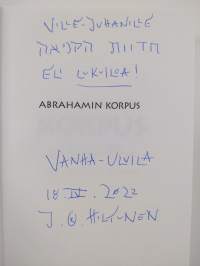 VILLE-JUHANILLE
חדוות הקריאה
ELI LUKUILOA!
ABRAHAMIN KORPUS
VANHA-ULVILA
18 IV. 2022
J. HILTUNEN